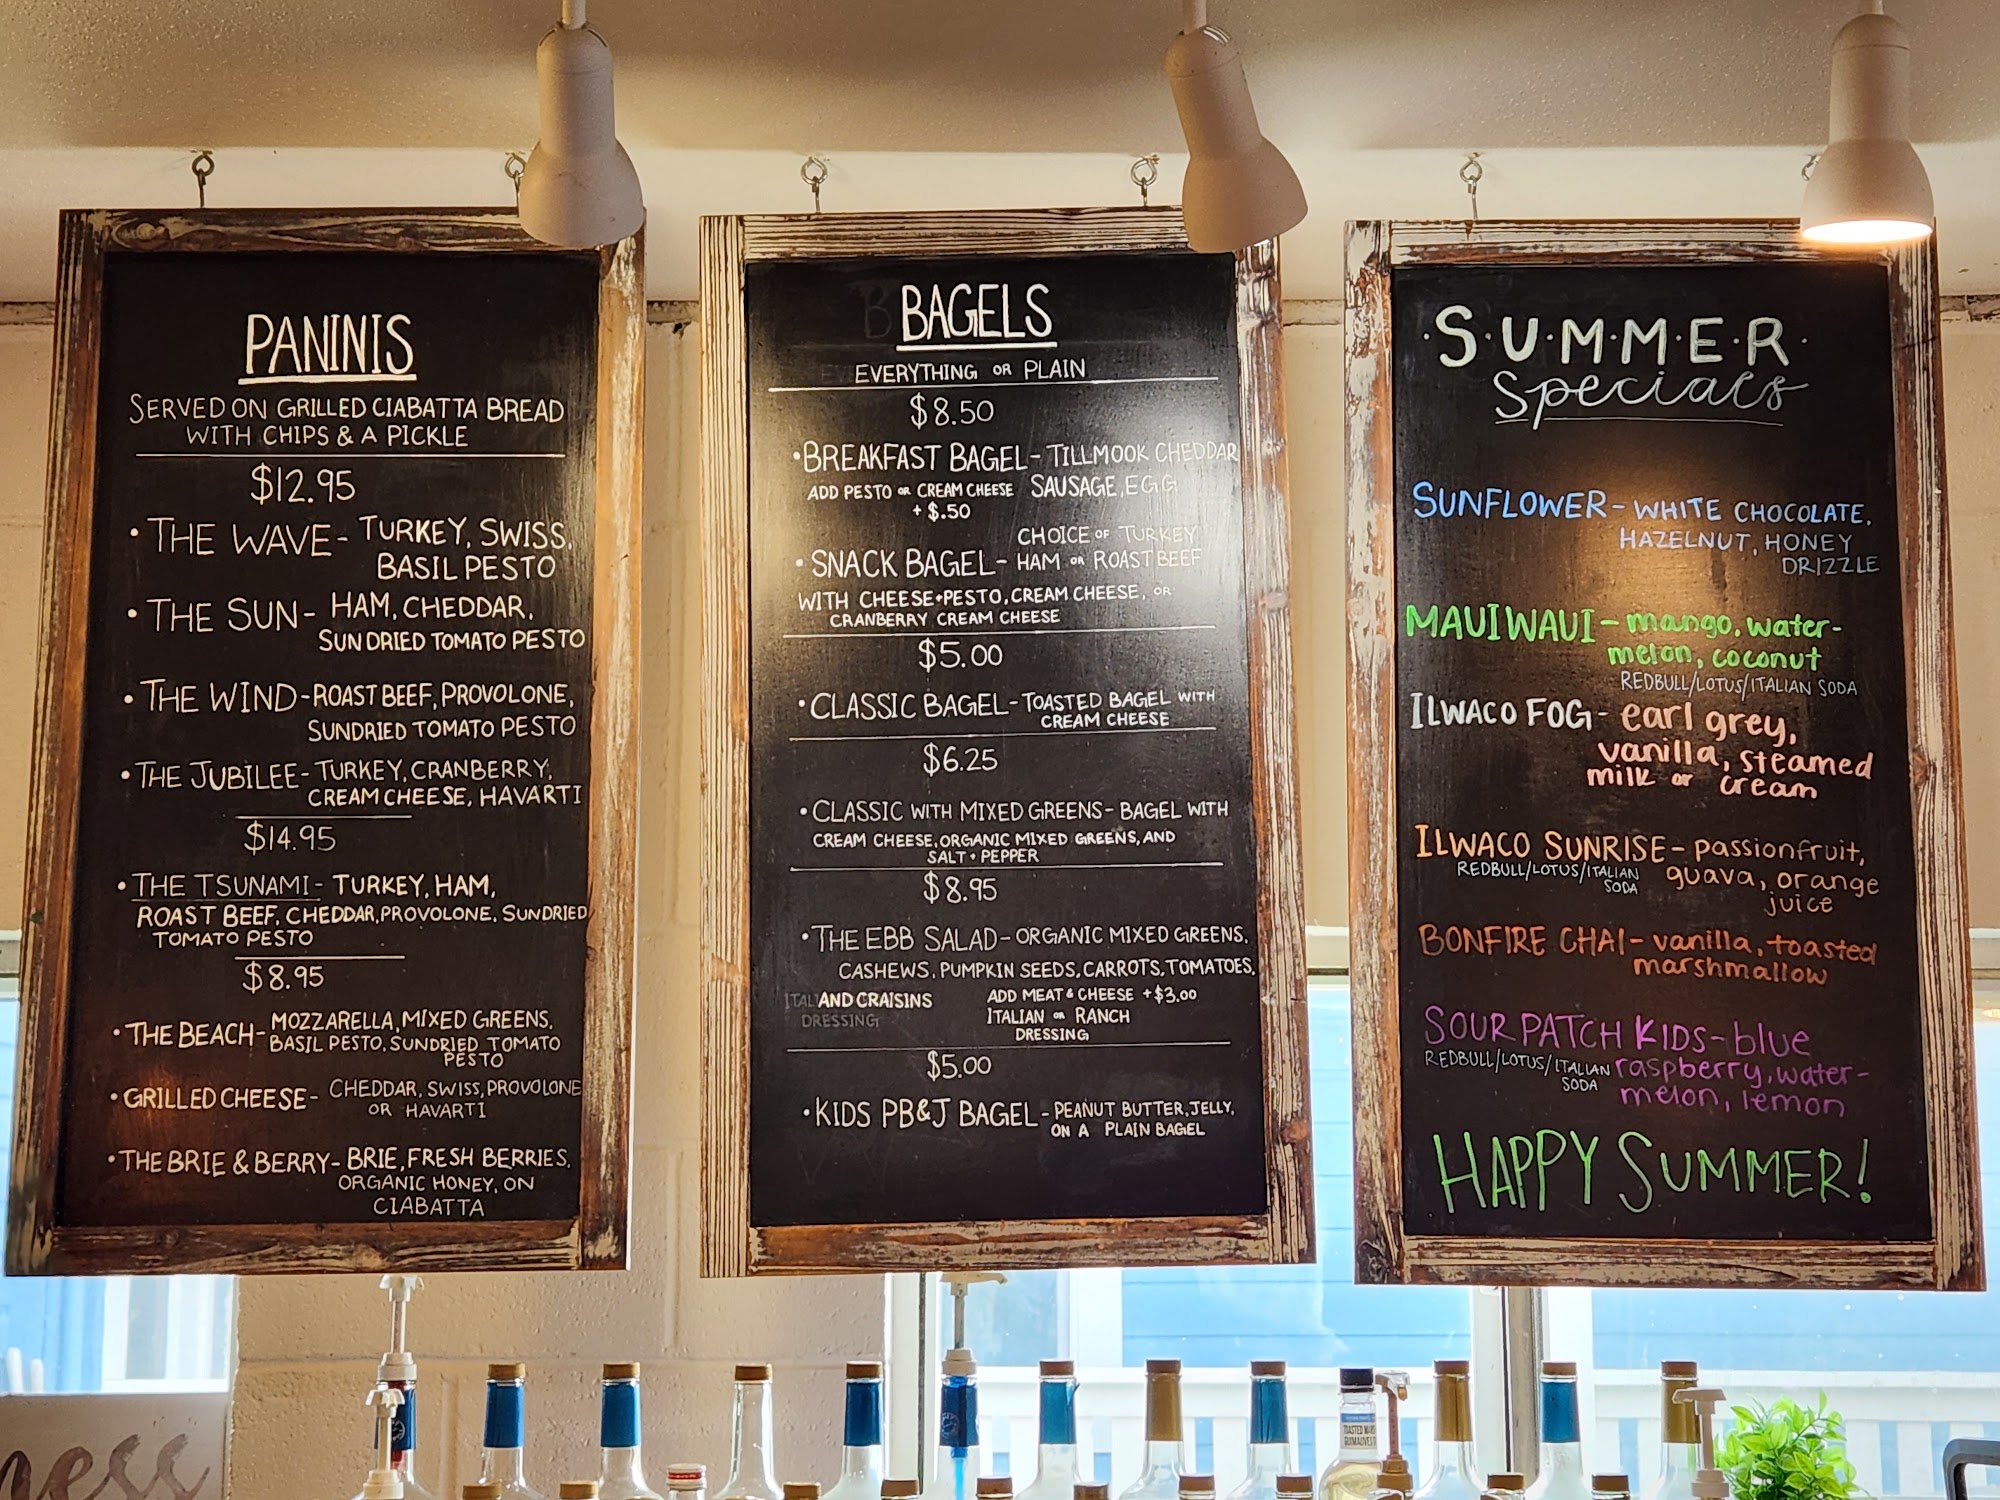 PANINIS
SERVED ON GRILLED CIABATTA BREAD
WITH CHIPS & A PICKLE
$12.95
• THE WAVE - TURKEY, SWISS,
BASIL PESTO
• THE SUN - HAM, CHEDDAR,
SUNDRIED TOMATO PESTO
• THE WIND - ROAST BEEF, PROVOLONE,
SUNDRIED TOMATO PESTO
• THE JUBILEE - TURKEY, CRANBERRY,
CREAM CHEESE, HAVARTI
$14.95
• THE TSUNAMI - TURKEY, HAM,
ROAST BEEF, CHEDDAR, PROVOLONE, SUNDRIED
TOMATO PESTO
$8.95
• THE BEACH - MOZZARELLA, MIXED GREENS,
BASIL PESTO, SUNDRIED TOMATO
PESTO
• GRILLED CHEESE - CHEDDAR, SWISS, PROVOLONE
OR HAVARTI
• THE BRIE & BERRY - BRIE, FRESH BERRIES,
ORGANIC HONEY, ON
CIABATTA
BAGELS
EVERYTHING OR PLAIN
$8.50
• BREAKFAST BAGEL - TILLMOOK CHEDDAR
ADD PESTO OR CREAM CHEESE SAUSAGE, EGG
+ $.50
CHOICE OF TURKEY
• SNACK BAGEL - HAM OR ROAST BEEF
WITH CHEESE + PESTO, CREAM CHEESE, OR
CRANBERRY CREAM CHEESE
$5.00
• CLASSIC BAGEL - TOASTED BAGEL WITH
CREAM CHEESE
$6.25
• CLASSIC WITH MIXED GREENS - BAGEL WITH
CREAM CHEESE, ORGANIC MIXED GREENS, AND
SALT + PEPPER
$8.95
• THE EBB SALAD - ORGANIC MIXED GREENS,
CASHEWS, PUMPKIN SEEDS, CARROTS, TOMATOES,
AND CRAISINS ADD MEAT & CHEESE + $3.00
DRESSING ITALIAN OR RANCH
DRESSING
$5.00
• KIDS PB&J BAGEL - PEANUT BUTTER, JELLY,
ON A PLAIN BAGEL
·S·U·M·M·E·R·
Specials
SUNFLOWER - WHITE CHOCOLATE,
HAZELNUT, HONEY
DRIZZLE
MAUI WAUI - mango, water-
melon, coconut
REDBULL/LOTUS/ITALIAN SODA
ILWACO FOG - earl grey,
vanilla, steamed
milk or cream
ILWACO SUNRISE - passionfruit,
REDBULL/LOTUS/ITALIAN guava, orange
SODA juice
BONFIRE CHAI - vanilla, toasted
marshmallow
SOUR PATCH KIDS - blue
REDBULL/LOTUS/ITALIAN raspberry, water-
SODA melon, lemon
HAPPY SUMMER!